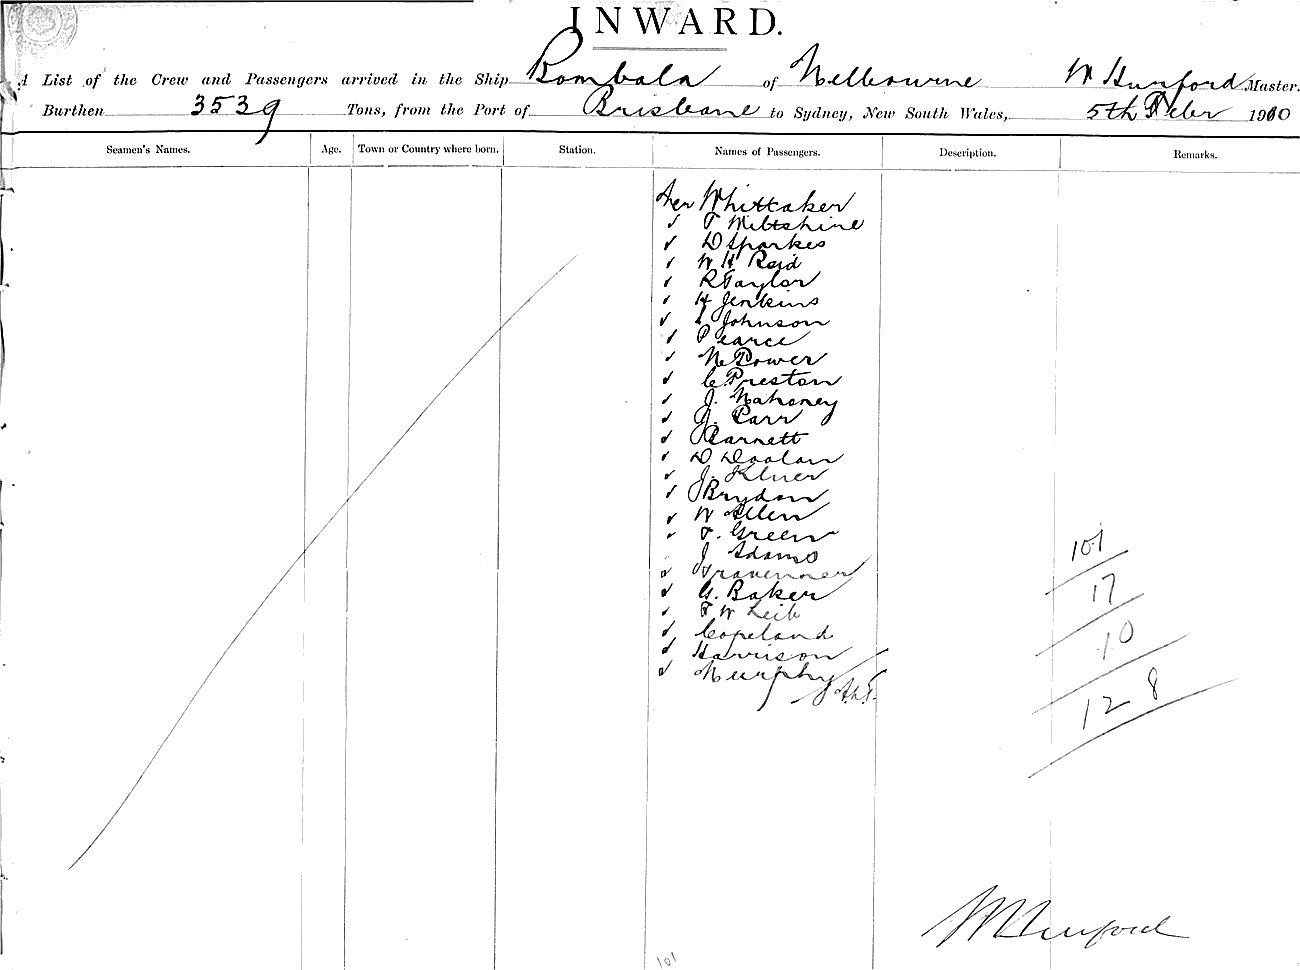 INWARD.
A List of the Crew and Passengers arrived in the Ship Bombala of Melbourne W Hurford Master.
Burthen 3539 Tons, from the Port of Brisbane to Sydney, New South Wales, 5th Feber 1910
Seamen's Names. Age. Town or Country where born. Station. Names of Passengers. Description. Remarks.
Whittaker
T Wiltshire
D Sparkes
W H Reid
R Taylor
H Jenkins
Johnson
Pearce
Power
C Preston
J. Mahoney
J. Carr
Barnett
D Doolan
J. Kilner
Brydon
W Allen
F. Green
J Adams
Gravenner
G. Baker
F W Leib
Copeland
Harrison
Murphy
101
17
10
128
W Hurford
101